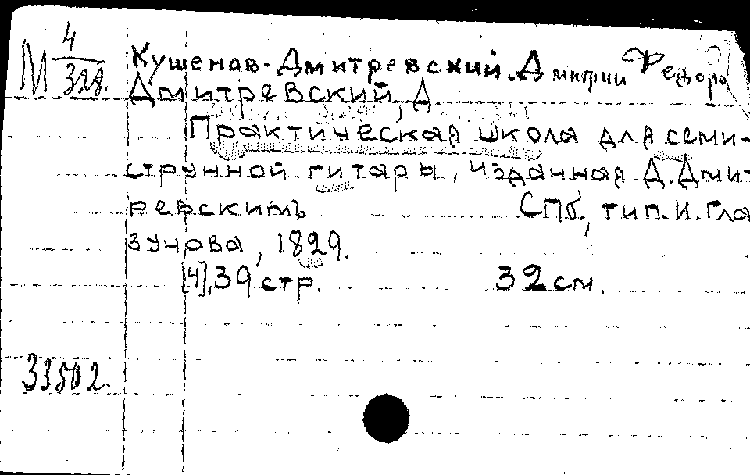 М 4/328.
Кушенав-Дмитревский Дмитрий Федоро
Дмитревский, Д
Практическая школа для семи-
струнной гитары, изданная Д. Дмит
ревскимъ СПб, тип. И. Гла
зунова, 1829.
[4], 39 стр. 32 см.
33502.